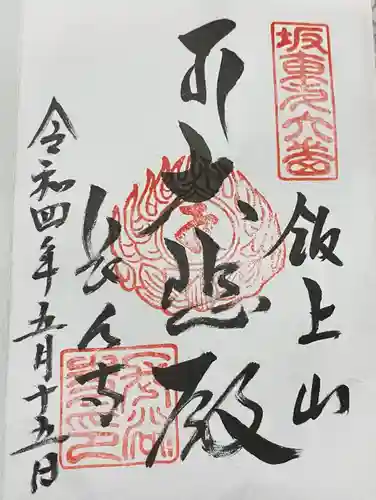 坂東第六番
飯上山
大悲殿
長谷寺
令和四年五月十五日